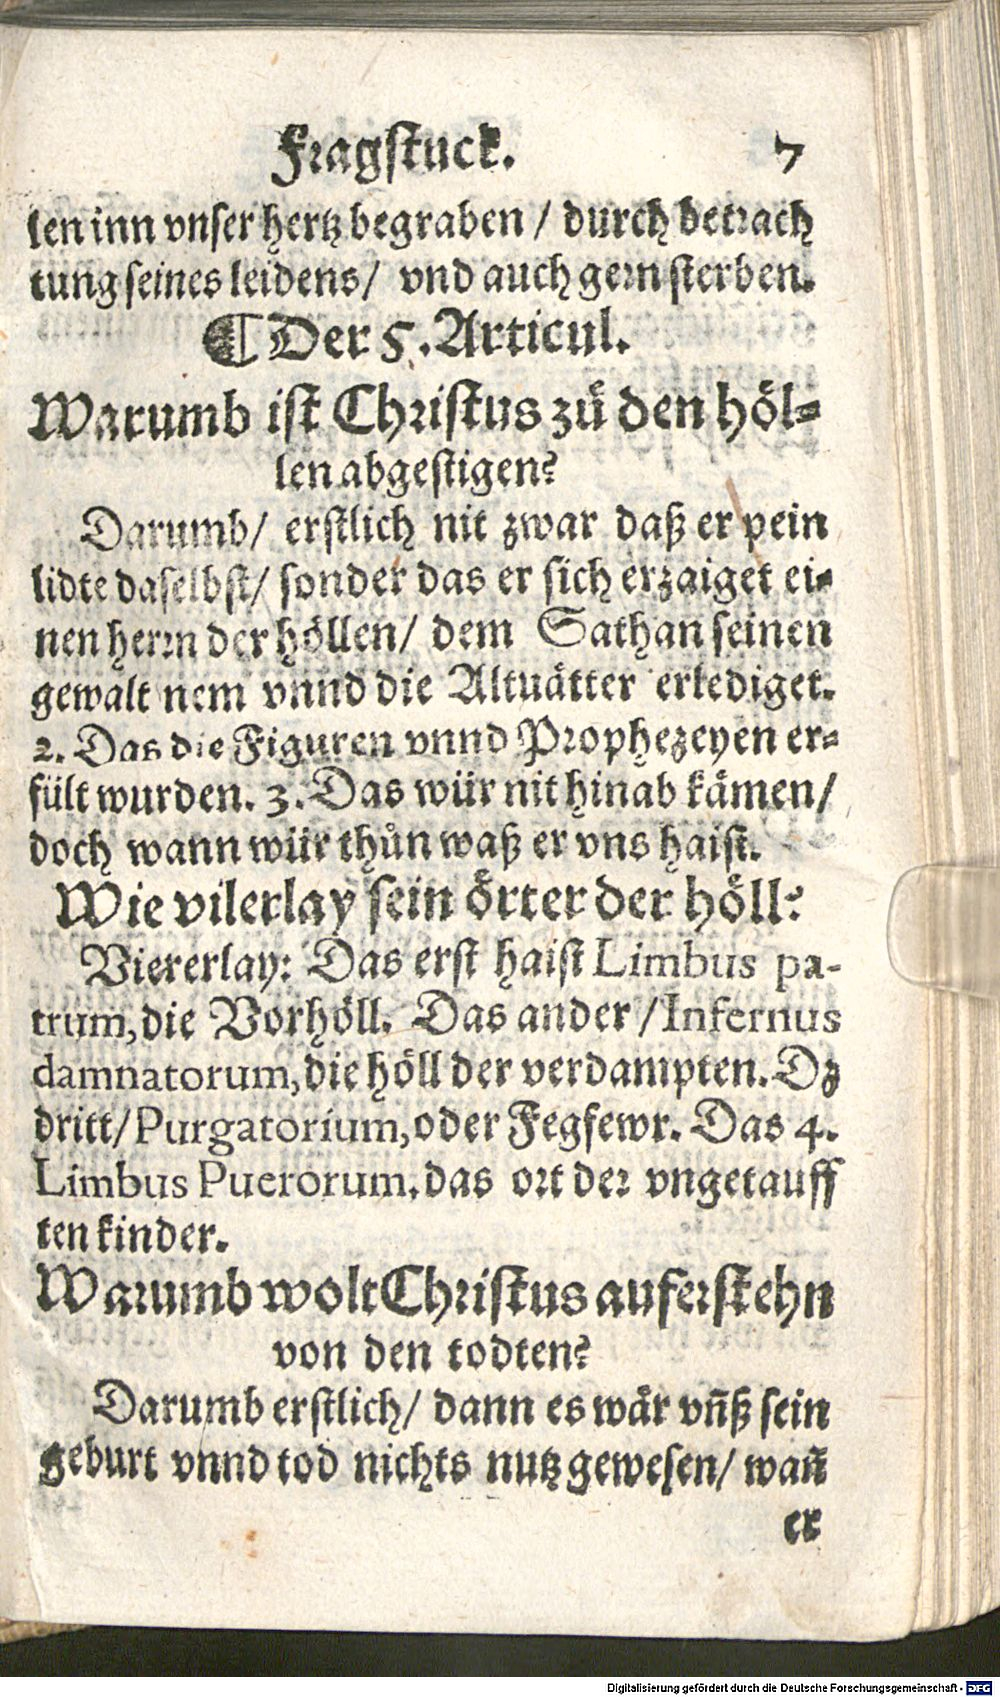 Fragstuck. 7
len inn vnser hertz begraben / durch betrach
tung seines leidens / vnd auch gern sterben.
¶ Der 5. Articul.
Warumb ist Christus zů den höl=
len abgestigen?
Darumb / erstlich nit zwar daß er pein
lidte daselbst / sonder das er sich erzaiget ei=
nen herrn der höllen / dem Sathan seinen
gewalt nem vnnd die Altuätter erlediget.
2. Das die Figuren vnnd Prophezeyen er=
fült wurden. 3. Das wür nit hinab kämen /
doch wann wür thůn waß er vns haist.
Wie vilerlay sein örter der höll?
Viererlay: Das erst haist Limbus pa-
trum, die Vorhöll. Das ander / Infernus
damnatorum, die höll der verdampten. Dz
dritt / Purgatorium, oder Fegfewr. Das 4.
Limbus Puerorum, das ort der vngetauff
ten kinder.
Warumb wolt Christus auferstehn
von den todten?
Darumb erstlich / dann es wär vn̄ß sein
geburt vnnd tod nichts nutz gewesen / wan̄
er
Digitalisierung gefördert durch die Deutsche Forschungsgemeinschaft - DFG